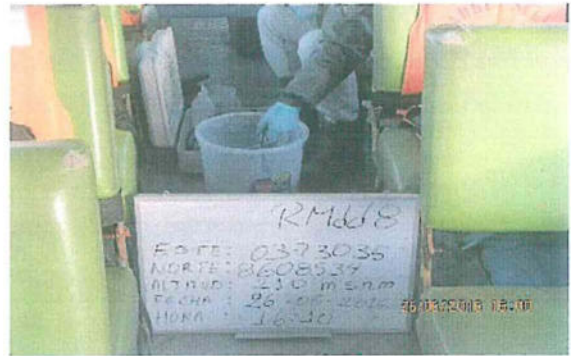 RMdd8
ESTE: 0373035
NORTE: 8608534
ALTITUD: 210 msnm
FECHA: 26-06-2016
HORA: 16:10